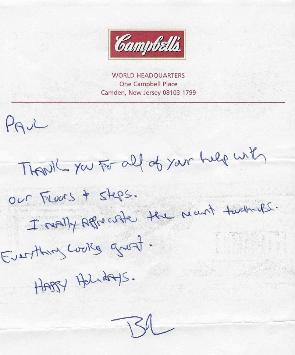 Campbell's
WORLD HEADQUARTERS
One Campbell Place
Camden, New Jersey 08103-1799
PAUL
THANK you For all of your help with
our Floors + steps.
I really Appreciate the touchups.
Everything looks great.
HAPPY Holidays.